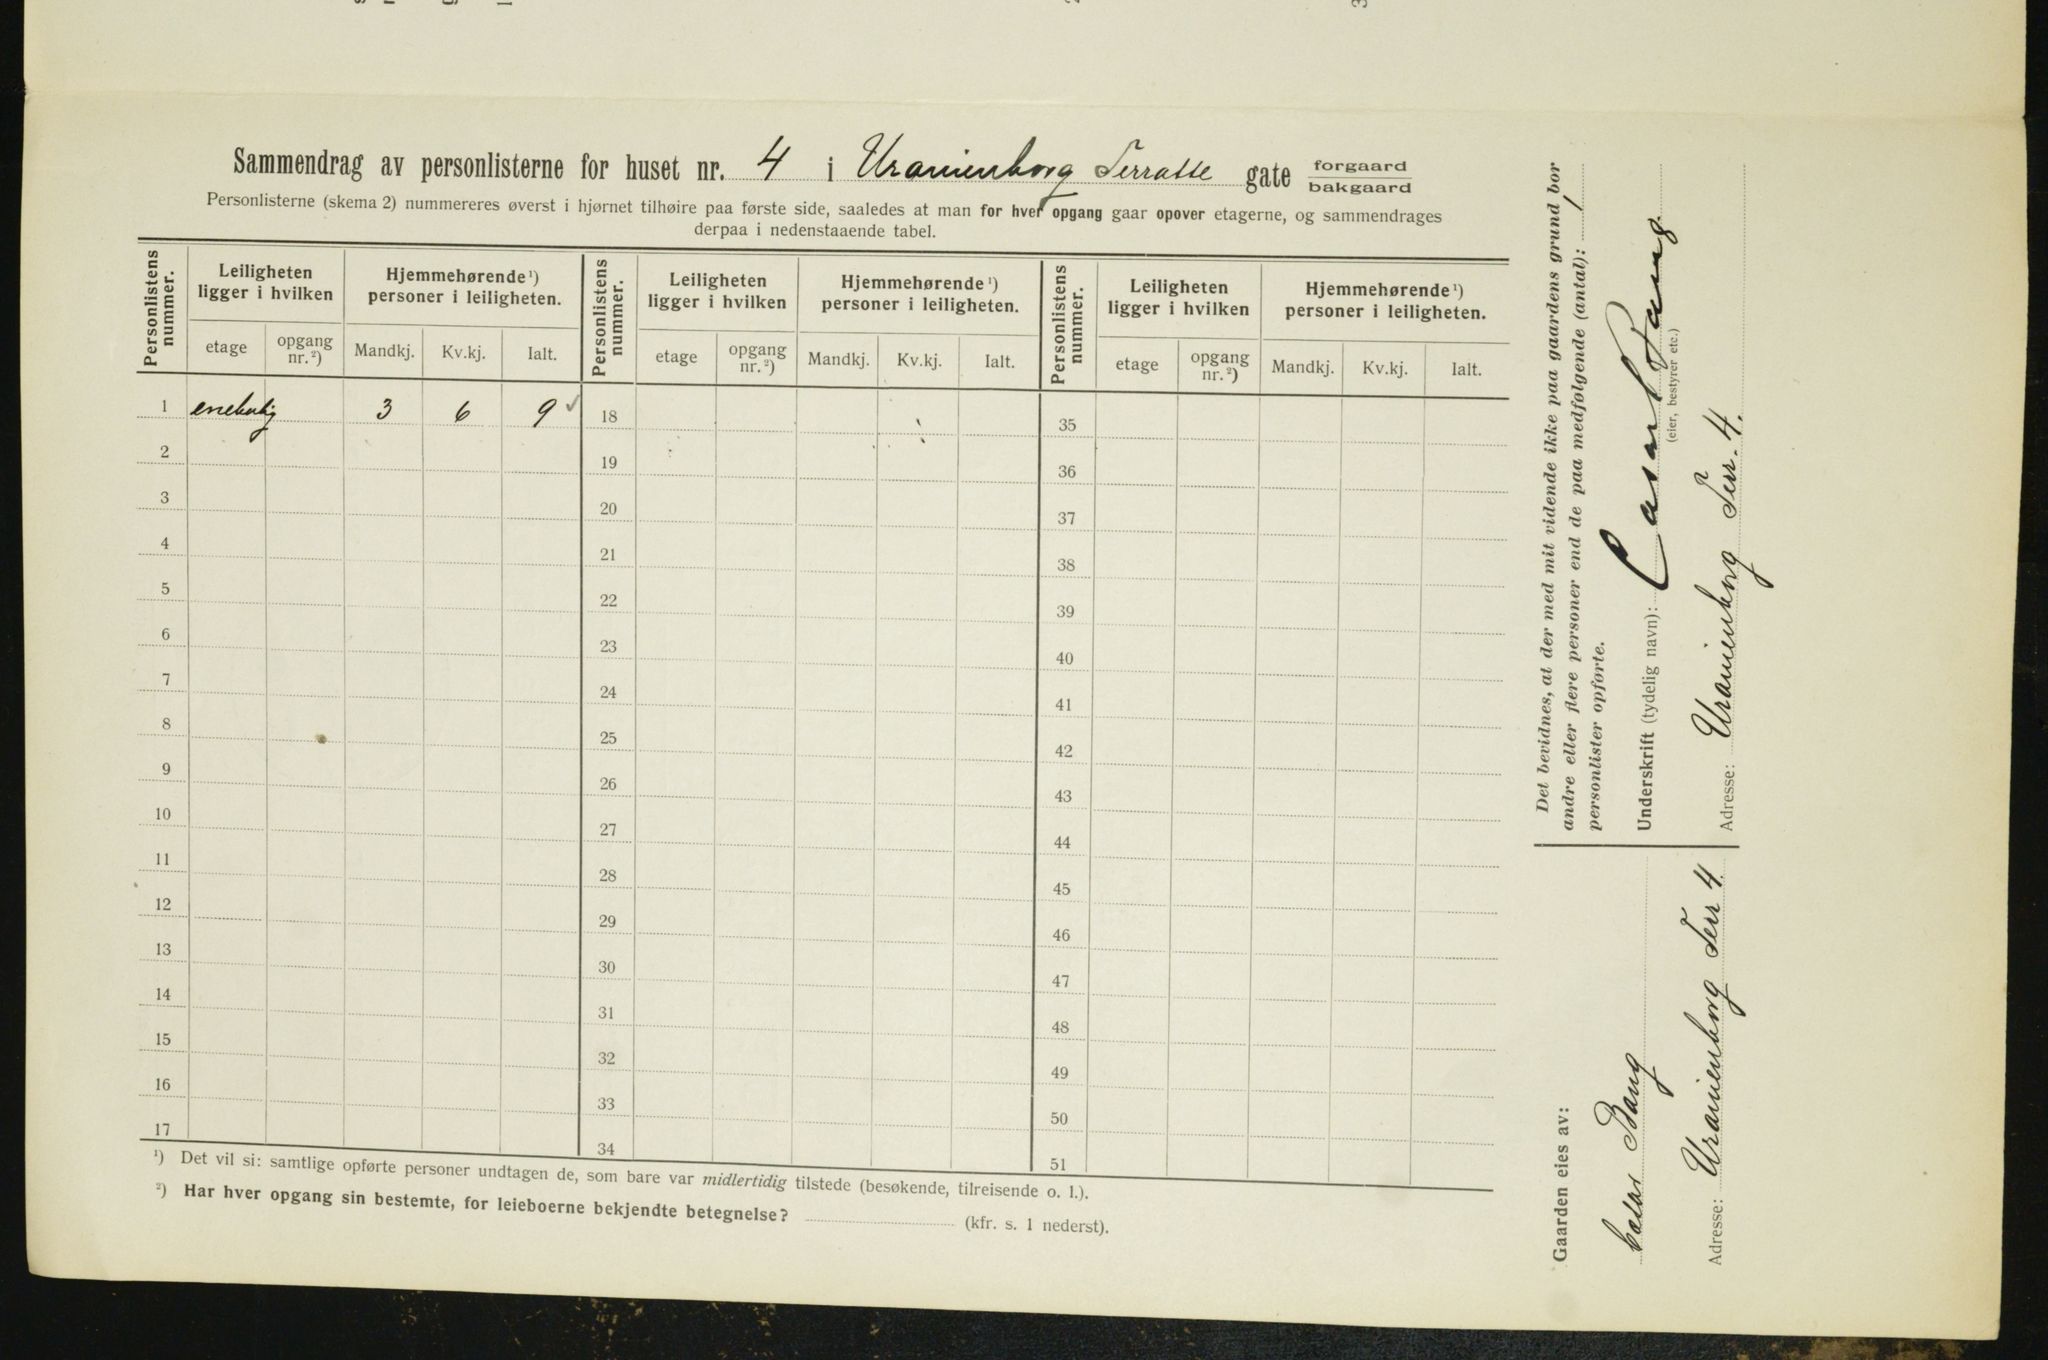 Sammendrag av personlisterne for huset nr. 4 i Uranienborg Terrasse gate forgaard
bakgaard
Personlisterne (skema 2) nummereres øverst i hjørnet tilhøire paa første side, saaledes at man for hver opgang gaar opover etagerne, og sammendrages
derpaa i nedenstaaende tabel.
Personlistens nummer. Leiligheten ligger i hvilken Hjemmehørende ¹) personer i leiligheten. Personlistens nummer. Leiligheten ligger i hvilken Hjemmehørende ¹) personer i leiligheten. Personlistens nummer. Leiligheten ligger i hvilken Hjemmehørende ¹) personer i leiligheten.
etage opgang nr. ²) Mandkj. Kv.kj. Ialt. etage opgang nr. ²) Mandkj. Kv.kj. Ialt. etage opgang nr. ²) Mandkj. Kv.kj. Ialt.
1 enebolig 3 6 9 ✓ 18 35
2 19 36
3 20 37
4 21 38
5 22 39
6 23 40
7 24 41
8 25 42
9 26 43
10 27 44
11 28 45
12 29 46
13 30 47
14 31 48
15 32 49
16 33 50
17 34 51
¹) Det vil si: samtlige opførte personer undtagen de, som bare var midlertidig tilstede (besøkende, tilreisende o. l.).
²) Har hver opgang sin bestemte, for leieboerne bekjendte betegnelse? (kfr. s. 1 nederst).
Det bevidnes, at der med mit vidende ikke paa gaardens grund bor
andre eller flere personer end de paa medfølgende (antal): 1
personlister opførte.
Underskrift (tydelig navn): Bang
(eier, bestyrer etc.)
Adresse: Uranienborg Terr. 4.
Gaarden eies av:
Bang
Adresse: Uranienborg Terr 4